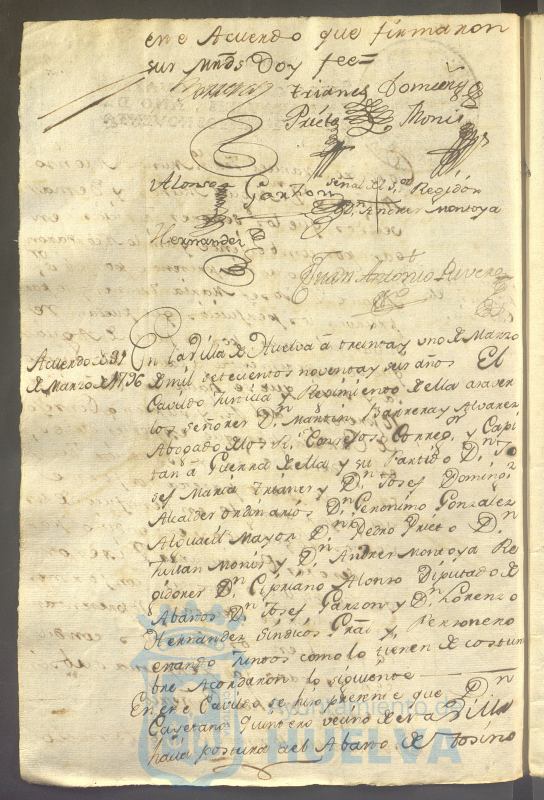 en e Acuerdo que firmaron
sus mrds Doy fee=
Barrera Trianes Domingz
Prieto Monis
Alonso Garzon señal del Sor Regidor
Dn Andres Montoya
Hernandez
Juan Antonio Rivera
Acuerdo de 31
de Marzo de 1796
En la Villa de Huelva á treinta y uno de Marzo
de mil setecientos noventa y seis años El
Cavildo Justicia y Reximiento de ella a saver
los señores Dn Martin Barrera y Alvarez
Abogado de los Rs. Consejos Correg.or y Capi
tan á Guerra de ella y su Partido Dn Jo
sef Maria Trianes y Dn Josef Domingz
Alcaldes ordinarios Dn Geronimo Gonzalez
Alguacil Mayor Dn Pedro Prieto Dn
Julian Monis y Dn Andres Montoya Re
gidores Dn Cipriano Alonso Diputado de
Abastos Dn Josef Garzon y Dn Lorenzo
Hernandez Sindicos Gral y Personero
estando juntos como lo tienen de costum
bre Acordaron lo siguiente
En este Cavildo se hizo presente que Dn
Cayetano Quintero vecino de esta Villa
hacía postura al Abasto de Tosino
Ayuntamiento de
HUELVA